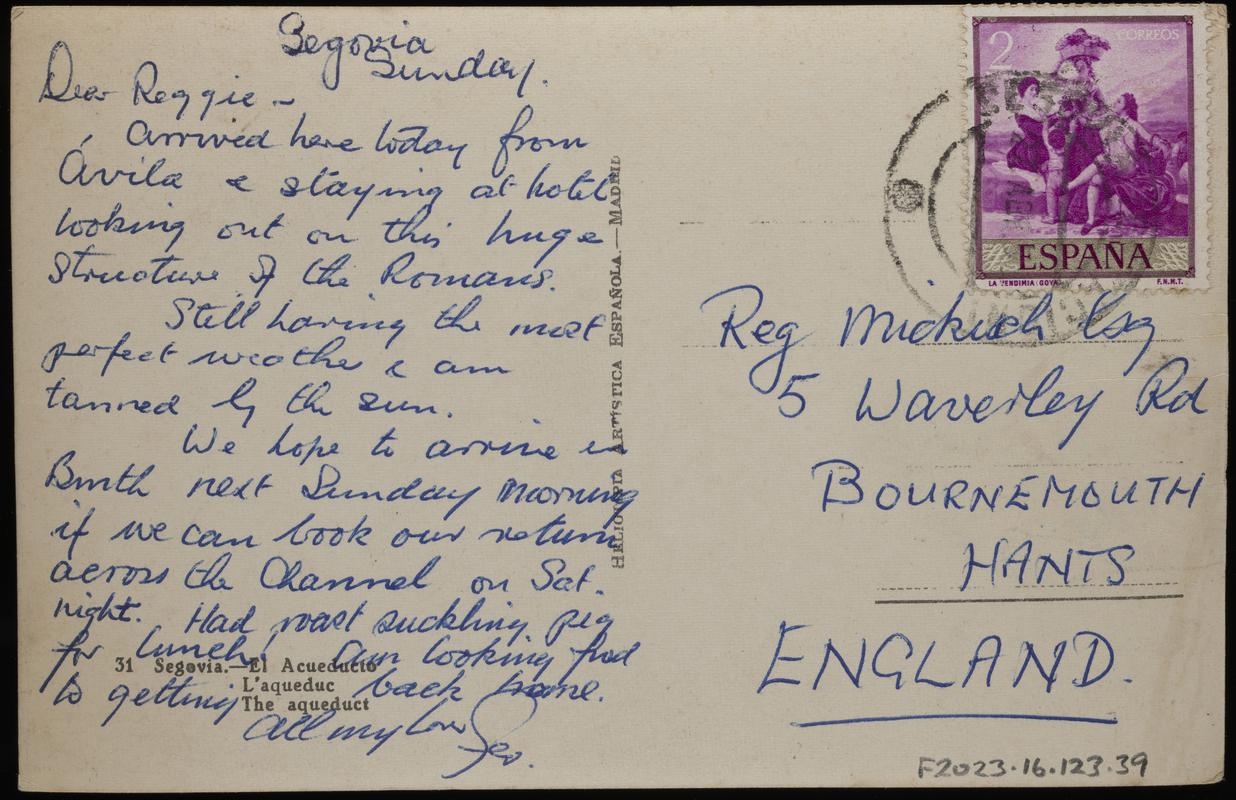 Segovia
Sunday.
Dear Reggie –
Arrived here today from
Ávila & staying at hotel
looking out on this huge
structure of the Romans.
Still having the most
perfect weather & am
tanned by the sun.
We hope to arrive in
Bmth next Sunday morning
if we can book our return
across the Channel on Sat.
night. Had roast suckling pig
for lunch! Am looking fwd
to getting back home.
All my love
Geo.
31 Segovia.—El Acueducto
L'aqueduc
The aqueduct
HELIOTIPIA ARTÍSTICA ESPAÑOLA.—MADRID
2 CORREOS
ESPAÑA
LA VENDIMIA (GOYA)
F.N.M.T.
Reg Esq
5 Waverley Rd
BOURNEMOUTH
HANTS
ENGLAND.
F2023.16.123.39